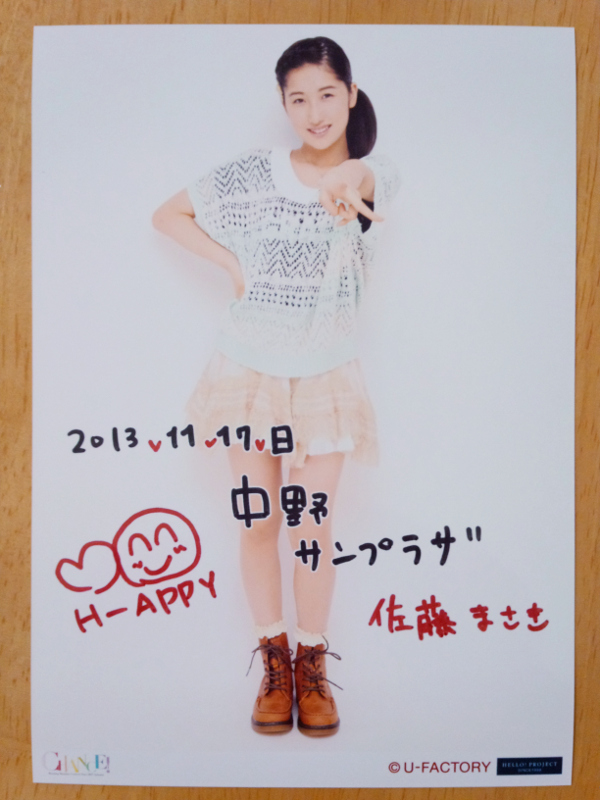 2013♥11♥17♥日
中野
サンプラザ
H-APPY
佐藤 まさき
CHANCE!
©U-FACTORY
HELLO! PROJECT